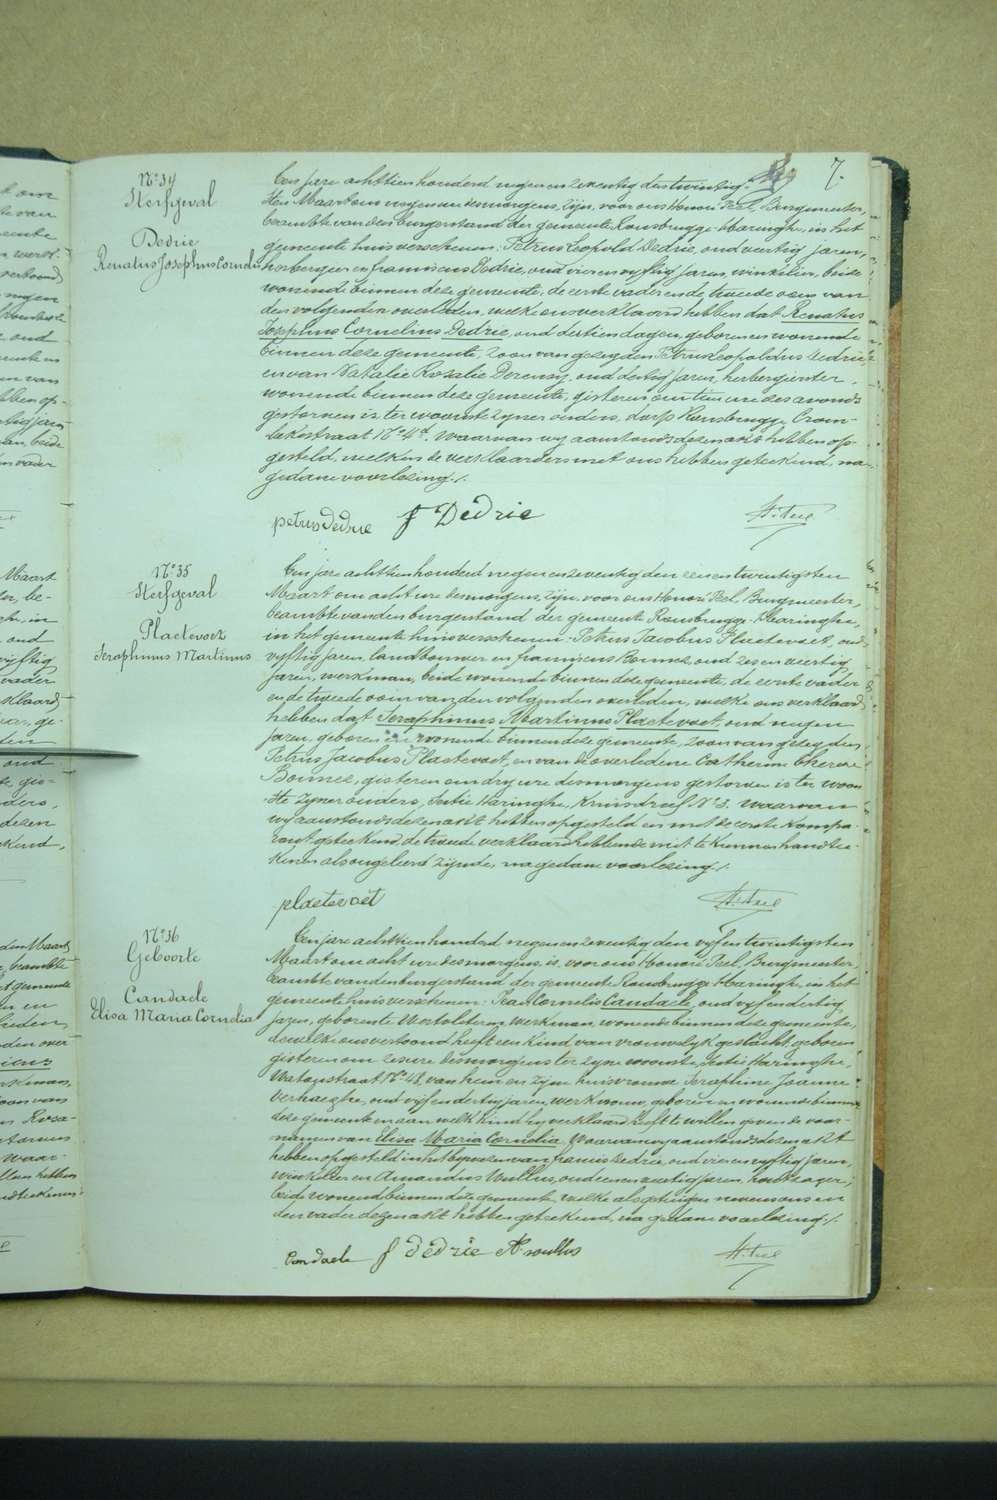 7.
N° 34
Sterfgeval
Dedrie
Renatus Josephus Cornelius
Een jare achttien honderd negen en zeventig den twintig-
sten Maart om negen ure des morgens, zijn, voor ons Honoré Peel, Burgmeester,
beambte van den burgerstand der gemeente Rousbrugge-Haringhe, in het
gemeente huis verschenen: Petrus Leopold Dedrie, oud veertig jaren,
herbergier en franciscus Dedrie, oud vier en vyftig jaren, winkelier, beide
wonende binnen deze gemeente, de eerste vader en de tweede oom van
den volgenden overleden, welke ons verklaard hebben dat Renatus
Josephus Cornelius Dedrie, oud dertien dagen, geboren en wonende
binnen deze gemeente, zoon van gezegden Petrus Leopoldus Dedrie
en van Natalie Rosalie, oud dertig jaren, herbergierster,
wonende binnen deze gemeente, gisteren om tien ure des avonds
gestorven is ter woonste zyner ouders, dorp Rousbrugge, Crom-
bekestraat N° 4. Waarvan wy aanstonds dezen akt hebben op-
gesteld, welken de verklaarders met ons hebben geteekend, na
gedane voorlezing./.
petrus dedrie f Dedrie H. Peel
N° 35
Sterfgeval
Plaetevoet
Seraphinus Martinus
Een jare achttien honderd negen en zeventig den een en twintigsten
Maart om acht ure des morgens, zijn, voor ons Honoré Peel, Burgmeester,
beambte van den burgerstand der gemeente Rousbrugge-Haringhe,
in het gemeente huis verschenen: Petrus Jacobus Plaetevoet, oud
vyftig jaren, landbouwer en franciscus Bonnez, oud zes en veertig
jaren, werkman, beide wonende binnen deze gemeente, de eerste vader
en de tweede oom van den volgenden overleden, welke ons verklaard
hebben dat Seraphinus Martinus Plaetevoet, oud negen
jaren, geboren en wonende binnen deze gemeente, zoon van gezegden
Petrus Jacobus Plaetevoet, en van overledene Catherine Therese
Bonnez, gisteren om dry ure des morgens gestorven is ter woon-
ste zyner ouders, sectie Haringhe, N° 3. Waarvan
wy aanstonds dezen akt hebben opgesteld en met de eerste kompa-
rant geteekend, de tweede verklaard hebbende niet te kunnen handtee-
kenen als ongeleerd zijnde, na gedane voorlezing./.
plaetevoet H. Peel
N° 36
Geboorte
Candaele
Elisa Maria Cornelia
Een jare achttien honderd negen en zeventig den vyf en twintigsten
Maart om acht ure des morgens, is, voor ons Honoré Peel, Burgmeester,
beambte van den burgerstand der gemeente Rousbrugge-Haringhe, in het
gemeente huis verschenen: Ivan Cornelis Candaele, oud vyf en dertig
jaren, geboren te Westvleteren, werkman, wonende binnen deze gemeente,
dewelke ons vertoond heeft een kind van vrouwelyk geslacht, geboren
gisteren om zes ure des morgens ter zyne woonste, sectie Haringhe,
Watoustraat N° 48, van hem en zyne huisvrouwe Seraphine Joanna
Verhaeghe, oud vyf en dertig jaren, werkvrouw, geboren en wonende binnen
deze gemeente en aan welk kind hy verklaard heeft te willen geven de voor-
namen van Elisa Maria Cornelia. Waarvan wy aanstonds dezen akt
hebben opgesteld in het bywezen van francis Dedrie, oud vier en vyftig jaren,
winkelier en Amandus Wullus, oud een en zestig jaren, houtzager,
beide wonende binnen deze gemeente, welke als getuigen nevens ons en
den vader dezen akt hebben geteekend, na gedane voorlezing./.
Candaele f dedrie A wullus H. Peel